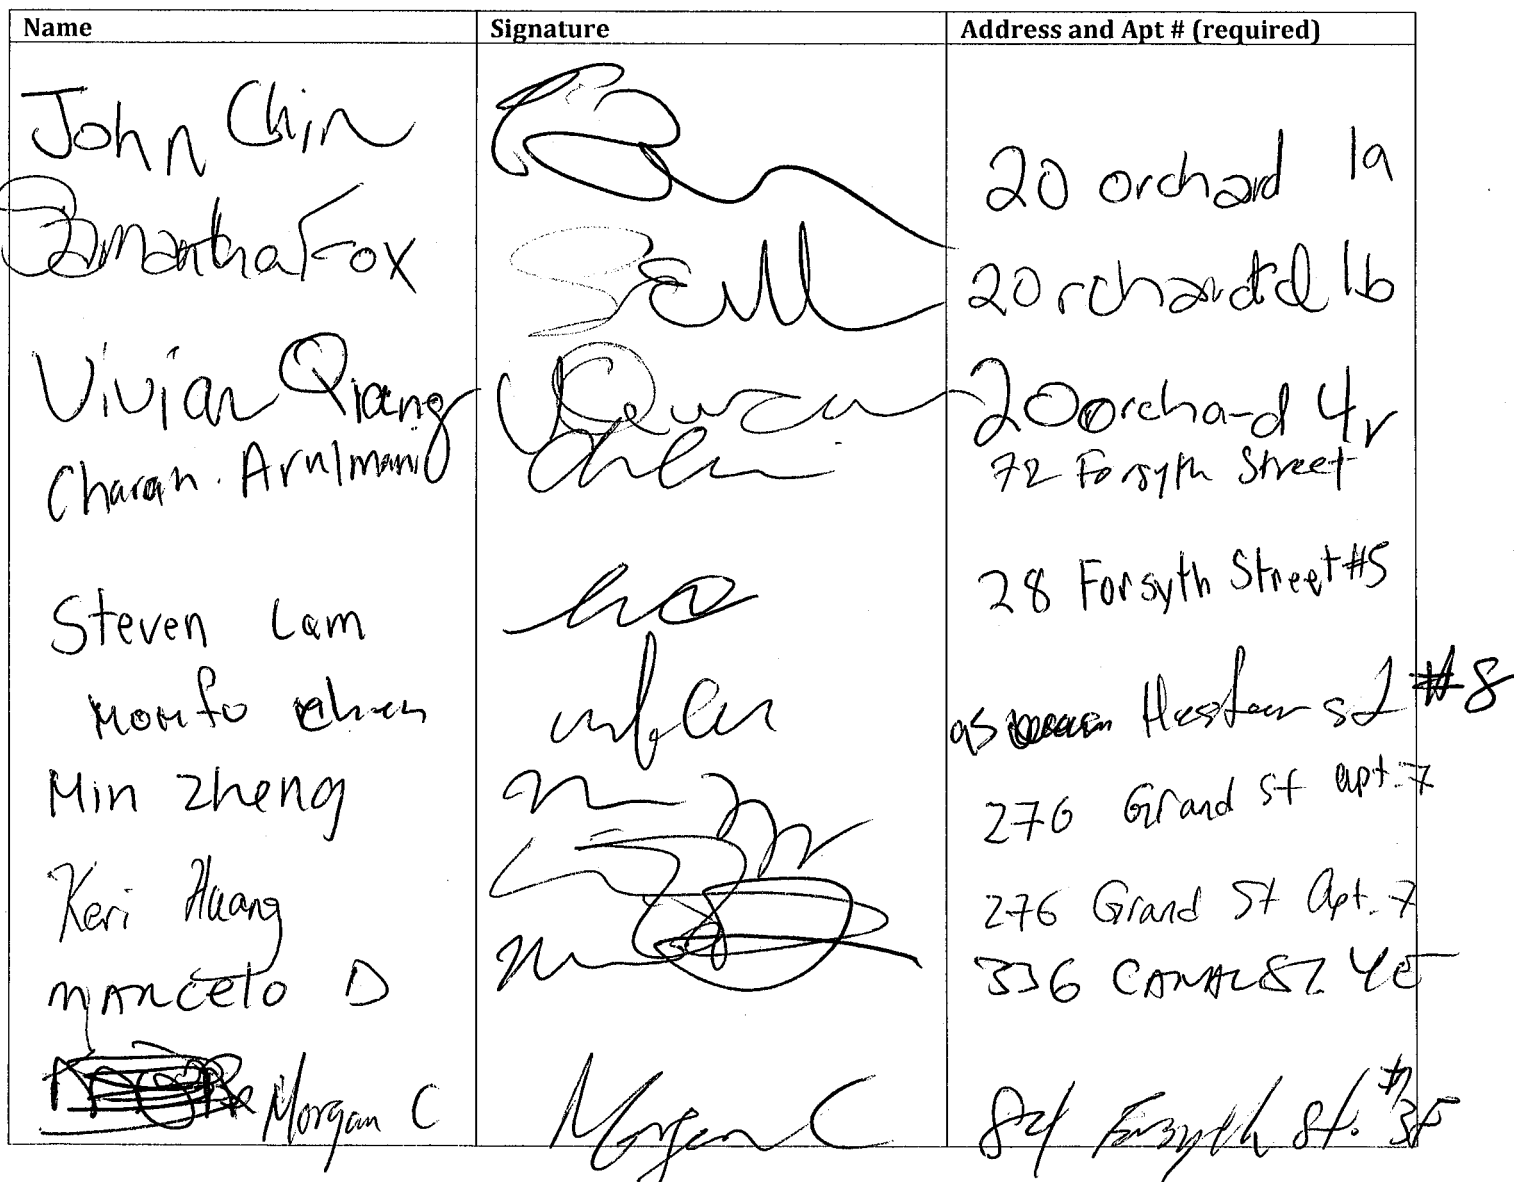 Name Signature Address and Apt # (required)
John Chin 20 orchard 1a
Samantha Fox 20 rchardd 1b
Vivian Qiang 20 orchard 4r
Charan. Arulmani 72 Forsyth Street
Steven Lam 28 Forsyth Street #5
95 st #8
Min Zheng 276 Grand St apt. 7
Keri Huang 276 Grand St Apt. 7
Marcelo D 336 CANAL ST. 4E
Morgan C Morgan C 84 Forsyth St. #3F